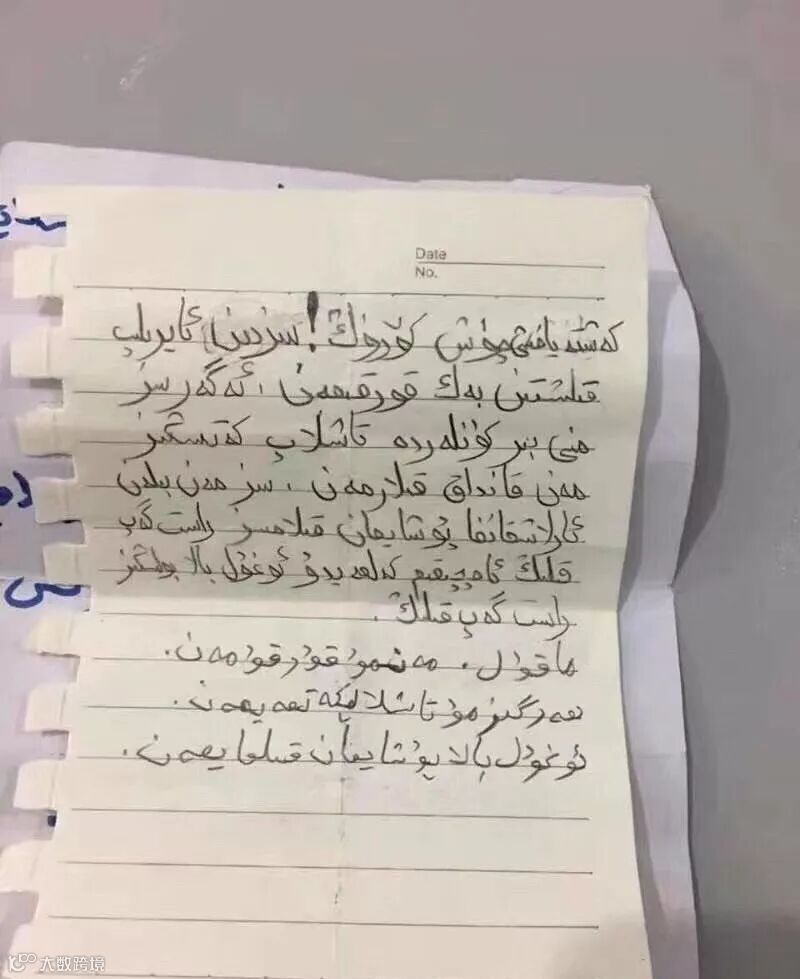 Date
No.
كەشتە ياخشى چۈش كۆرۈڭ! سىزدىن ئايرىلىپ
قىلىشتىن بەك قورقىمەن، ئەگەر سىز
مېنى بىر كۈنلەردە تاشلاپ كەتسىڭىز
مەن قانداق قىلارمەن، سىز مەن بىلەن
ئارلاشقانغا پۇشايمان قىلامسىز راست گەپ
قىلىڭ ئاچچىقىم كەلمەيدۇ ئوغۇل بالا بولسىڭىز
راست گەپ قىلىڭ.
ماقۇل. مەنمۇ قۇرقۇمەن.
ھەرگىزمۇ تاشلاپ كەتمەيمەن.
ئوغۇل بالا پۇشايمان قىلمايمەن.
大数跨境